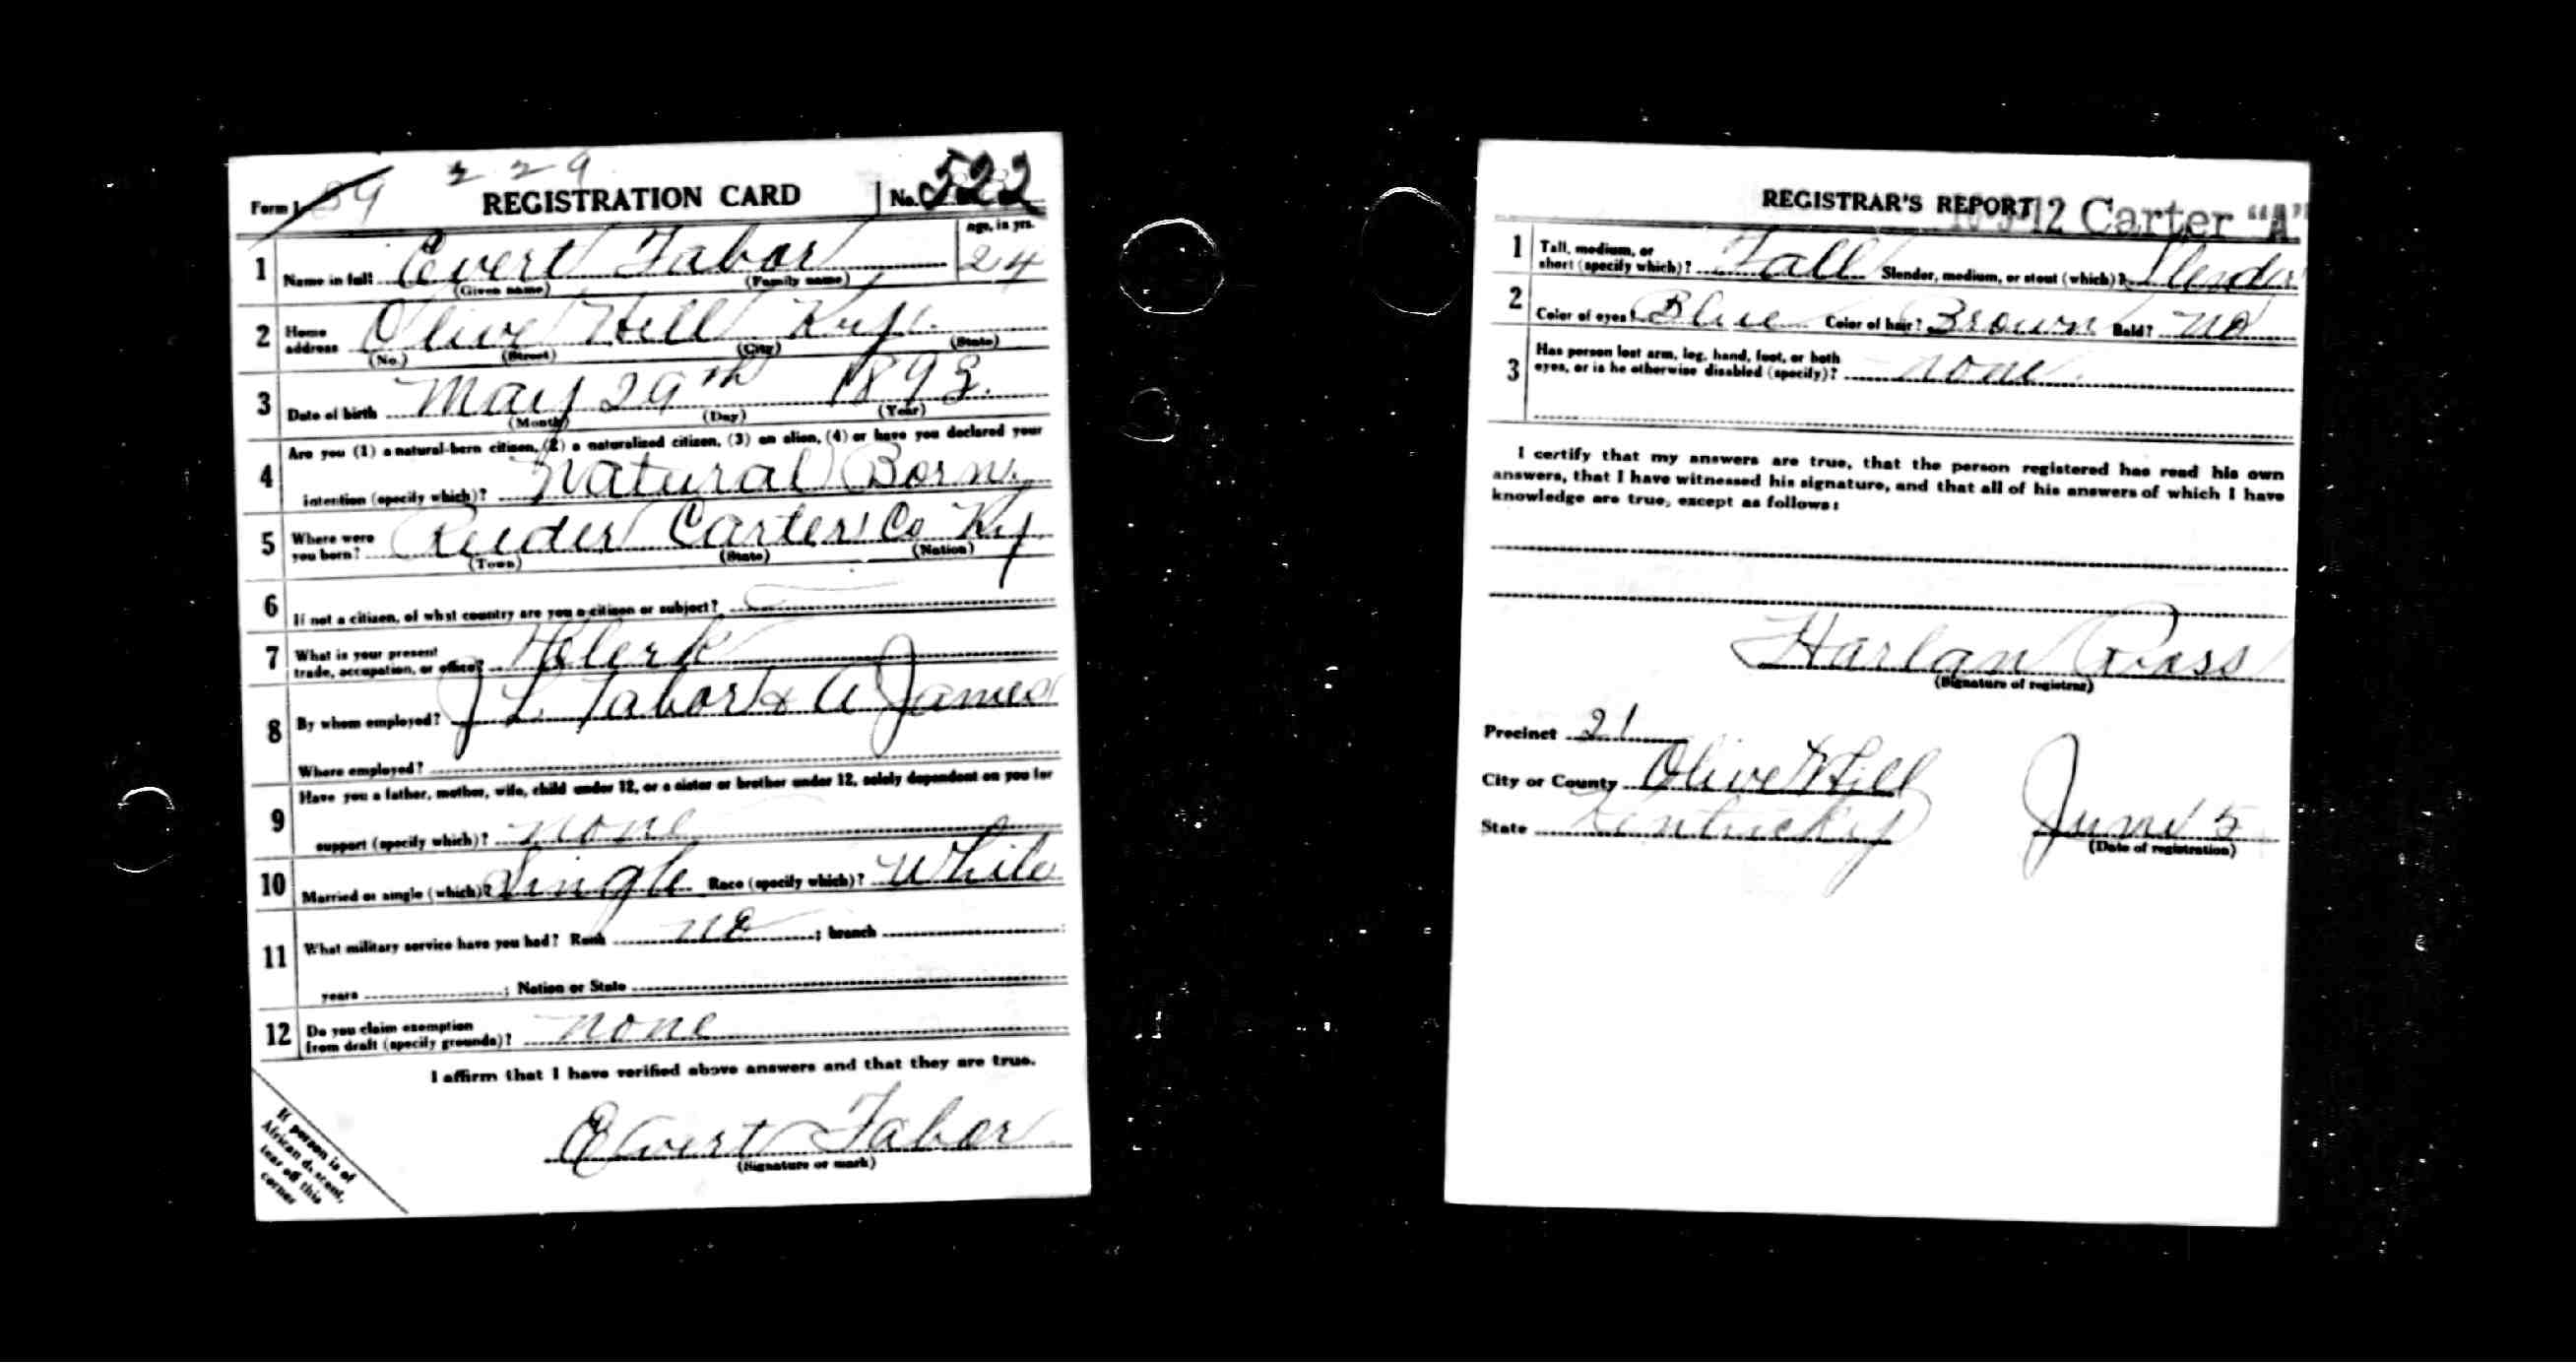 2 2 9
Form 1 89 REGISTRATION CARD No. 522
age, in yrs.
1 Name in full Evert Tabor 24
(Given name) (Family name)
2 Home address Olive Hill Ky.
(No.) (Street) (City) (State)
3 Date of birth May 29th 1893.
(Month) (Day) (Year)
4 Are you (1) a natural-born citizen, (2) a naturalized citizen, (3) an alien, (4) or have you declared your
intention (specify which)? Natural Born
5 Where were you born? Reeder Carter Co Ky.
(Town) (State) (Nation)
6 If not a citizen, of what country are you a citizen or subject?
7 What is your present trade, occupation, or office? Clerk
8 By whom employed? J L Tabor & A James
Where employed?
9 Have you a father, mother, wife, child under 12, or a sister or brother under 12, solely dependent on you for
support (specify which)? none
10 Married or single (which)? Single Race (specify which)? White
11 What military service have you had? Rank no ; branch
years ; Nation or State
12 Do you claim exemption from draft (specify grounds)? none
I affirm that I have verified above answers and that they are true.
Evert Tabor
(Signature or mark)
If person is of
African descent,
tear off this
corner
REGISTRAR'S REPORT 12 Carter "A"
1 Tall, medium, or short (specify which)? Tall Slender, medium, or stout (which)? Slender
2 Color of eyes? Blue Color of hair? Brown Bald? no
3 Has person lost arm, leg, hand, foot, or both
eyes, or is he otherwise disabled (specify)? none
I certify that my answers are true, that the person registered has read his own
answers, that I have witnessed his signature, and that all of his answers of which I have
knowledge are true, except as follows:
Harlan Ross
(Signature of registrar)
Precinct 21
City or County Olive Hill
State Kentucky June 5
(Date of registration)